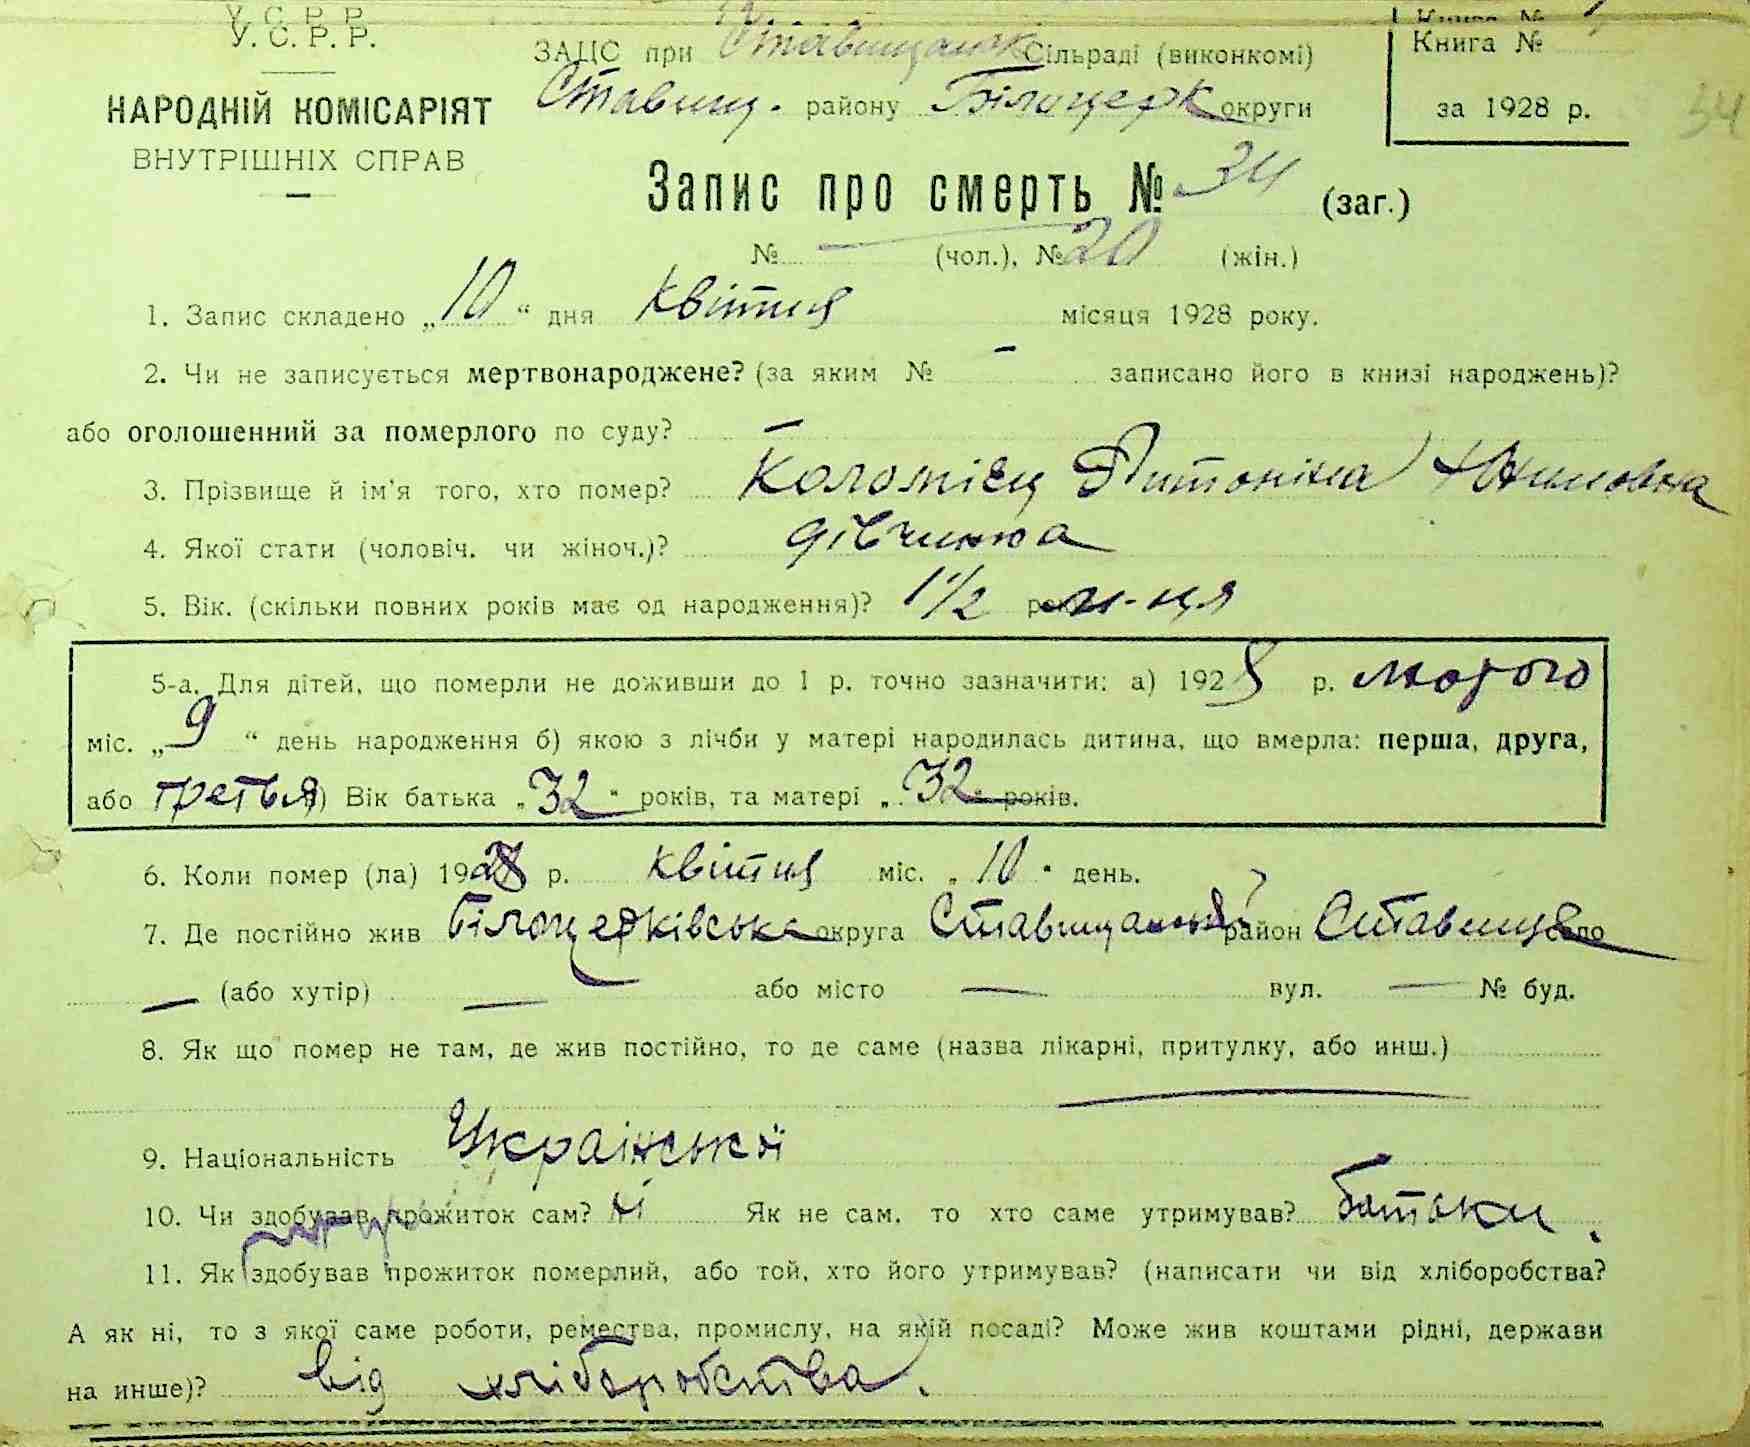 У. С. Р. Р.
У. С. Р. Р.
НАРОДНІЙ КОМІСАРІЯТ
ВНУТРІШНІХ СПРАВ
ЗАЦС при Ставищанск Сільраді (виконкомі)
Ставищ. району Білоцерк округи
Книга №
Книга №
за 1928 р.
34
Запис про смерть № 34 (заг.)
№ — (чол.), № 20 (жін.)
1. Запис складено „10“ дня квітня місяця 1928 року.
2. Чи не записується мертвонароджене? (за яким № – записано його в книзі народжень)?
або оголошенний за померлого по суду? –
3. Прізвище й ім'я того, хто помер? Коломієц Антоніна
4. Якої стати (чоловіч. чи жіноч.)? дівчинка
5. Вік. (скільки повних років має од народження)? 1 1/2 м-ця
5-а. Для дітей, що померли не доживши до 1 р. точно зазначити: а) 1928 р. лютого
міс. „9“ день народження б) якою з лічби у матері народилась дитина, що вмерла: перша, друга,
або третья) Вік батька „32“ років, та матері „32“ років.
6. Коли помер (ла) 1928 р. квітня міс. „10“ день.
7. Де постійно жив Білоцерківська округа Ставищанский район Ставище село
— (або хутір) — або місто — вул. — № буд.
8. Як що помер не там, де жив постійно, то де саме (назва лікарні, притулку, або инш.)
9. Національність Української
10. Чи здобував прожиток сам? ні Як не сам, то хто саме утримував? батьки.
11. Як здобував прожиток померлий, або той, хто його утримував? (написати чи від хліборобства?
А як ні, то з якої саме роботи, ремества, промислу, на якій посаді? Може жив коштами рідні, держави
на инше)? від хліборобства.